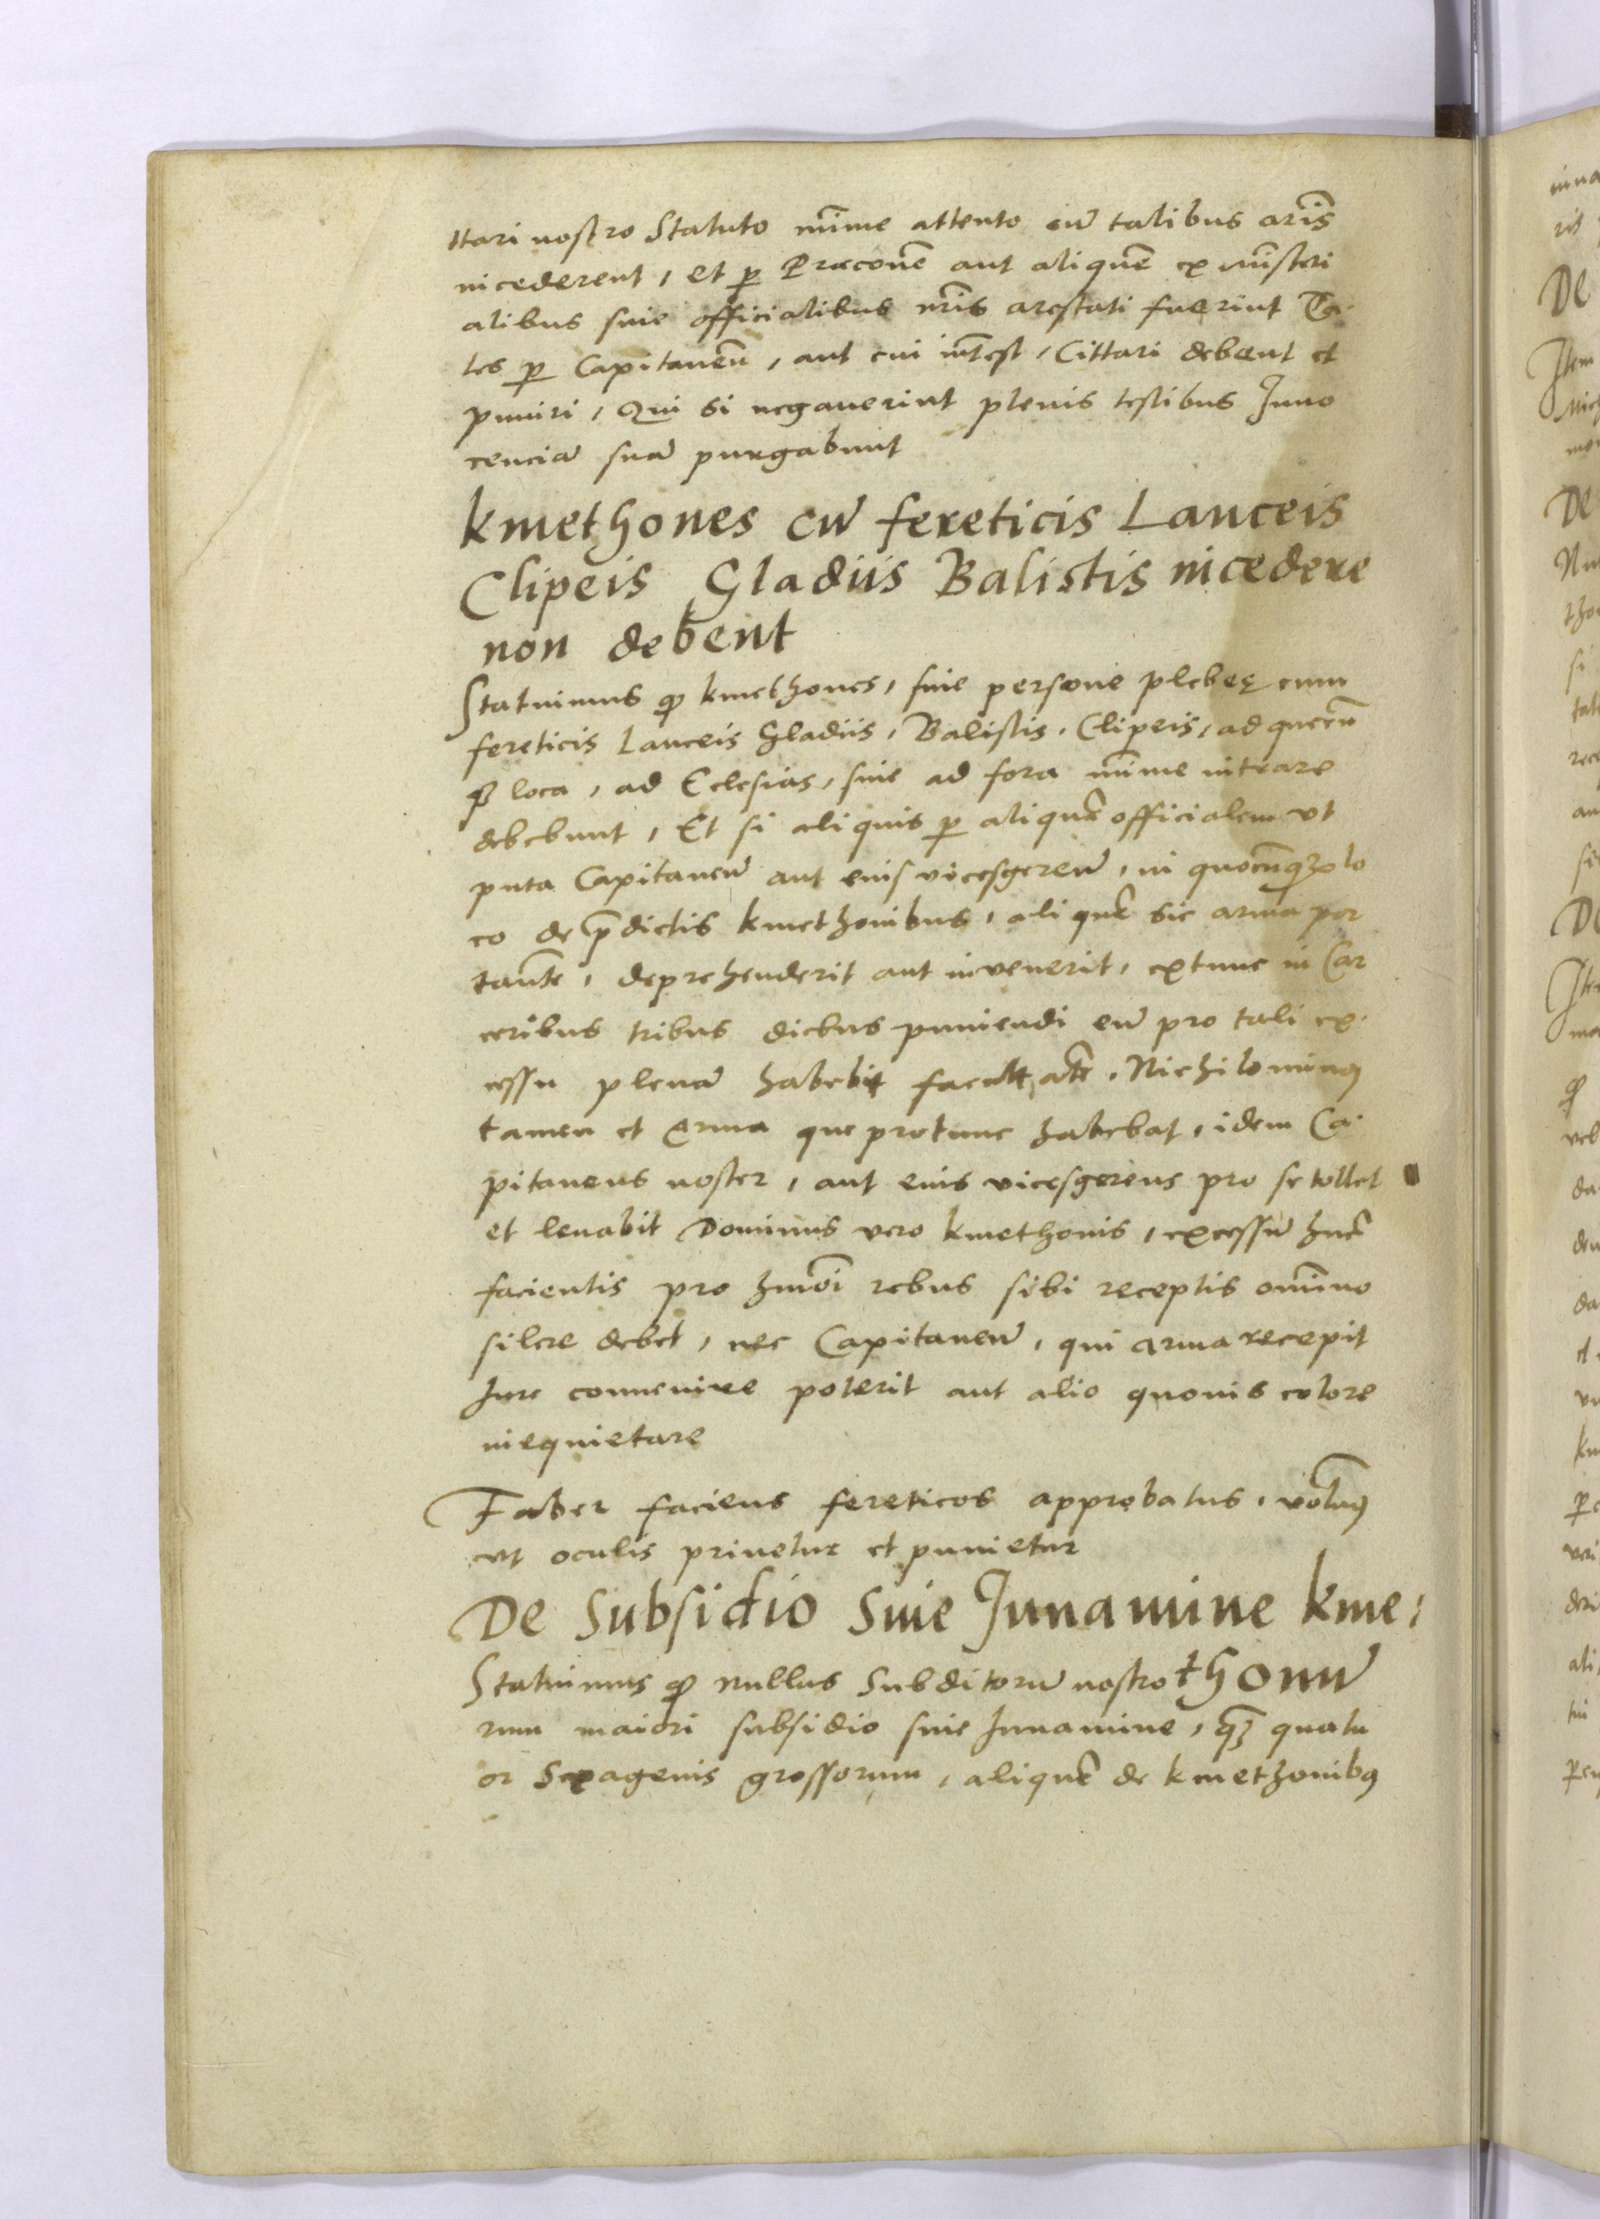 ttari nostro Statuto mīme attento cū talibus arīs
incederent, et ꝑ Præconē aut aliquē ex mīsteri
alibus siue officialibus nr̄is arestati fuerint Ta-
les ꝑ Capitaneū, aut cui int̄est, Cittari debent et
puniri, Qui si negauerint plenis testibus Inno
cenciā suā purgabunt
kmethones cū fereticis Lanceis
Clipeis Gladiis Balistis incedere
non debent
Statuimus ꝙ kmethones, siue persone plebeę cum
fereticis Lanceis Gladiis, Balistis, Clipeis, ad quecū
qꝫ loca, ad Eclesias, siue ad fora mīme intrare
debebunt, Et si aliquis ꝑ aliquē officialem vt
puta Capitaneū aut eius vicesgerentē, in quocūqꝫ lo
co de p̄dictis kmethonibus, aliquē sic arma por
tantē, deprehenderit aut invenerit, extunc in Car
ceribus tribus diebus puniendi eū pro tali ex-
cessu plenā habebit facultatē. Nichilominꝰ
tamen et arma que protunc habebat, idem Ca-
pitaneus noster, aut eius vicesgerens pro se tollet
et leuabit Dominus vero kmethonis, excessū hm̄oi
facientis pro hm̄oi rebus sibi receptis om̄ino
silere debet, nec Capitaneū, qui arma recepit
Iure conuenire poterit aut alio quouis colore
inequietare
Faber faciens fereticos approbatus, volumꝰ
vt oculis priuetur et punietur
De Subsidio Siue Iuuamine kme:
Statuimus ꝙ nullus Subditorū nostro thonū
rum maiori subsidio siue Iuuamine, qꝫ quatu
or Sexagenis grossorum, aliquē de kmethonibꝰ